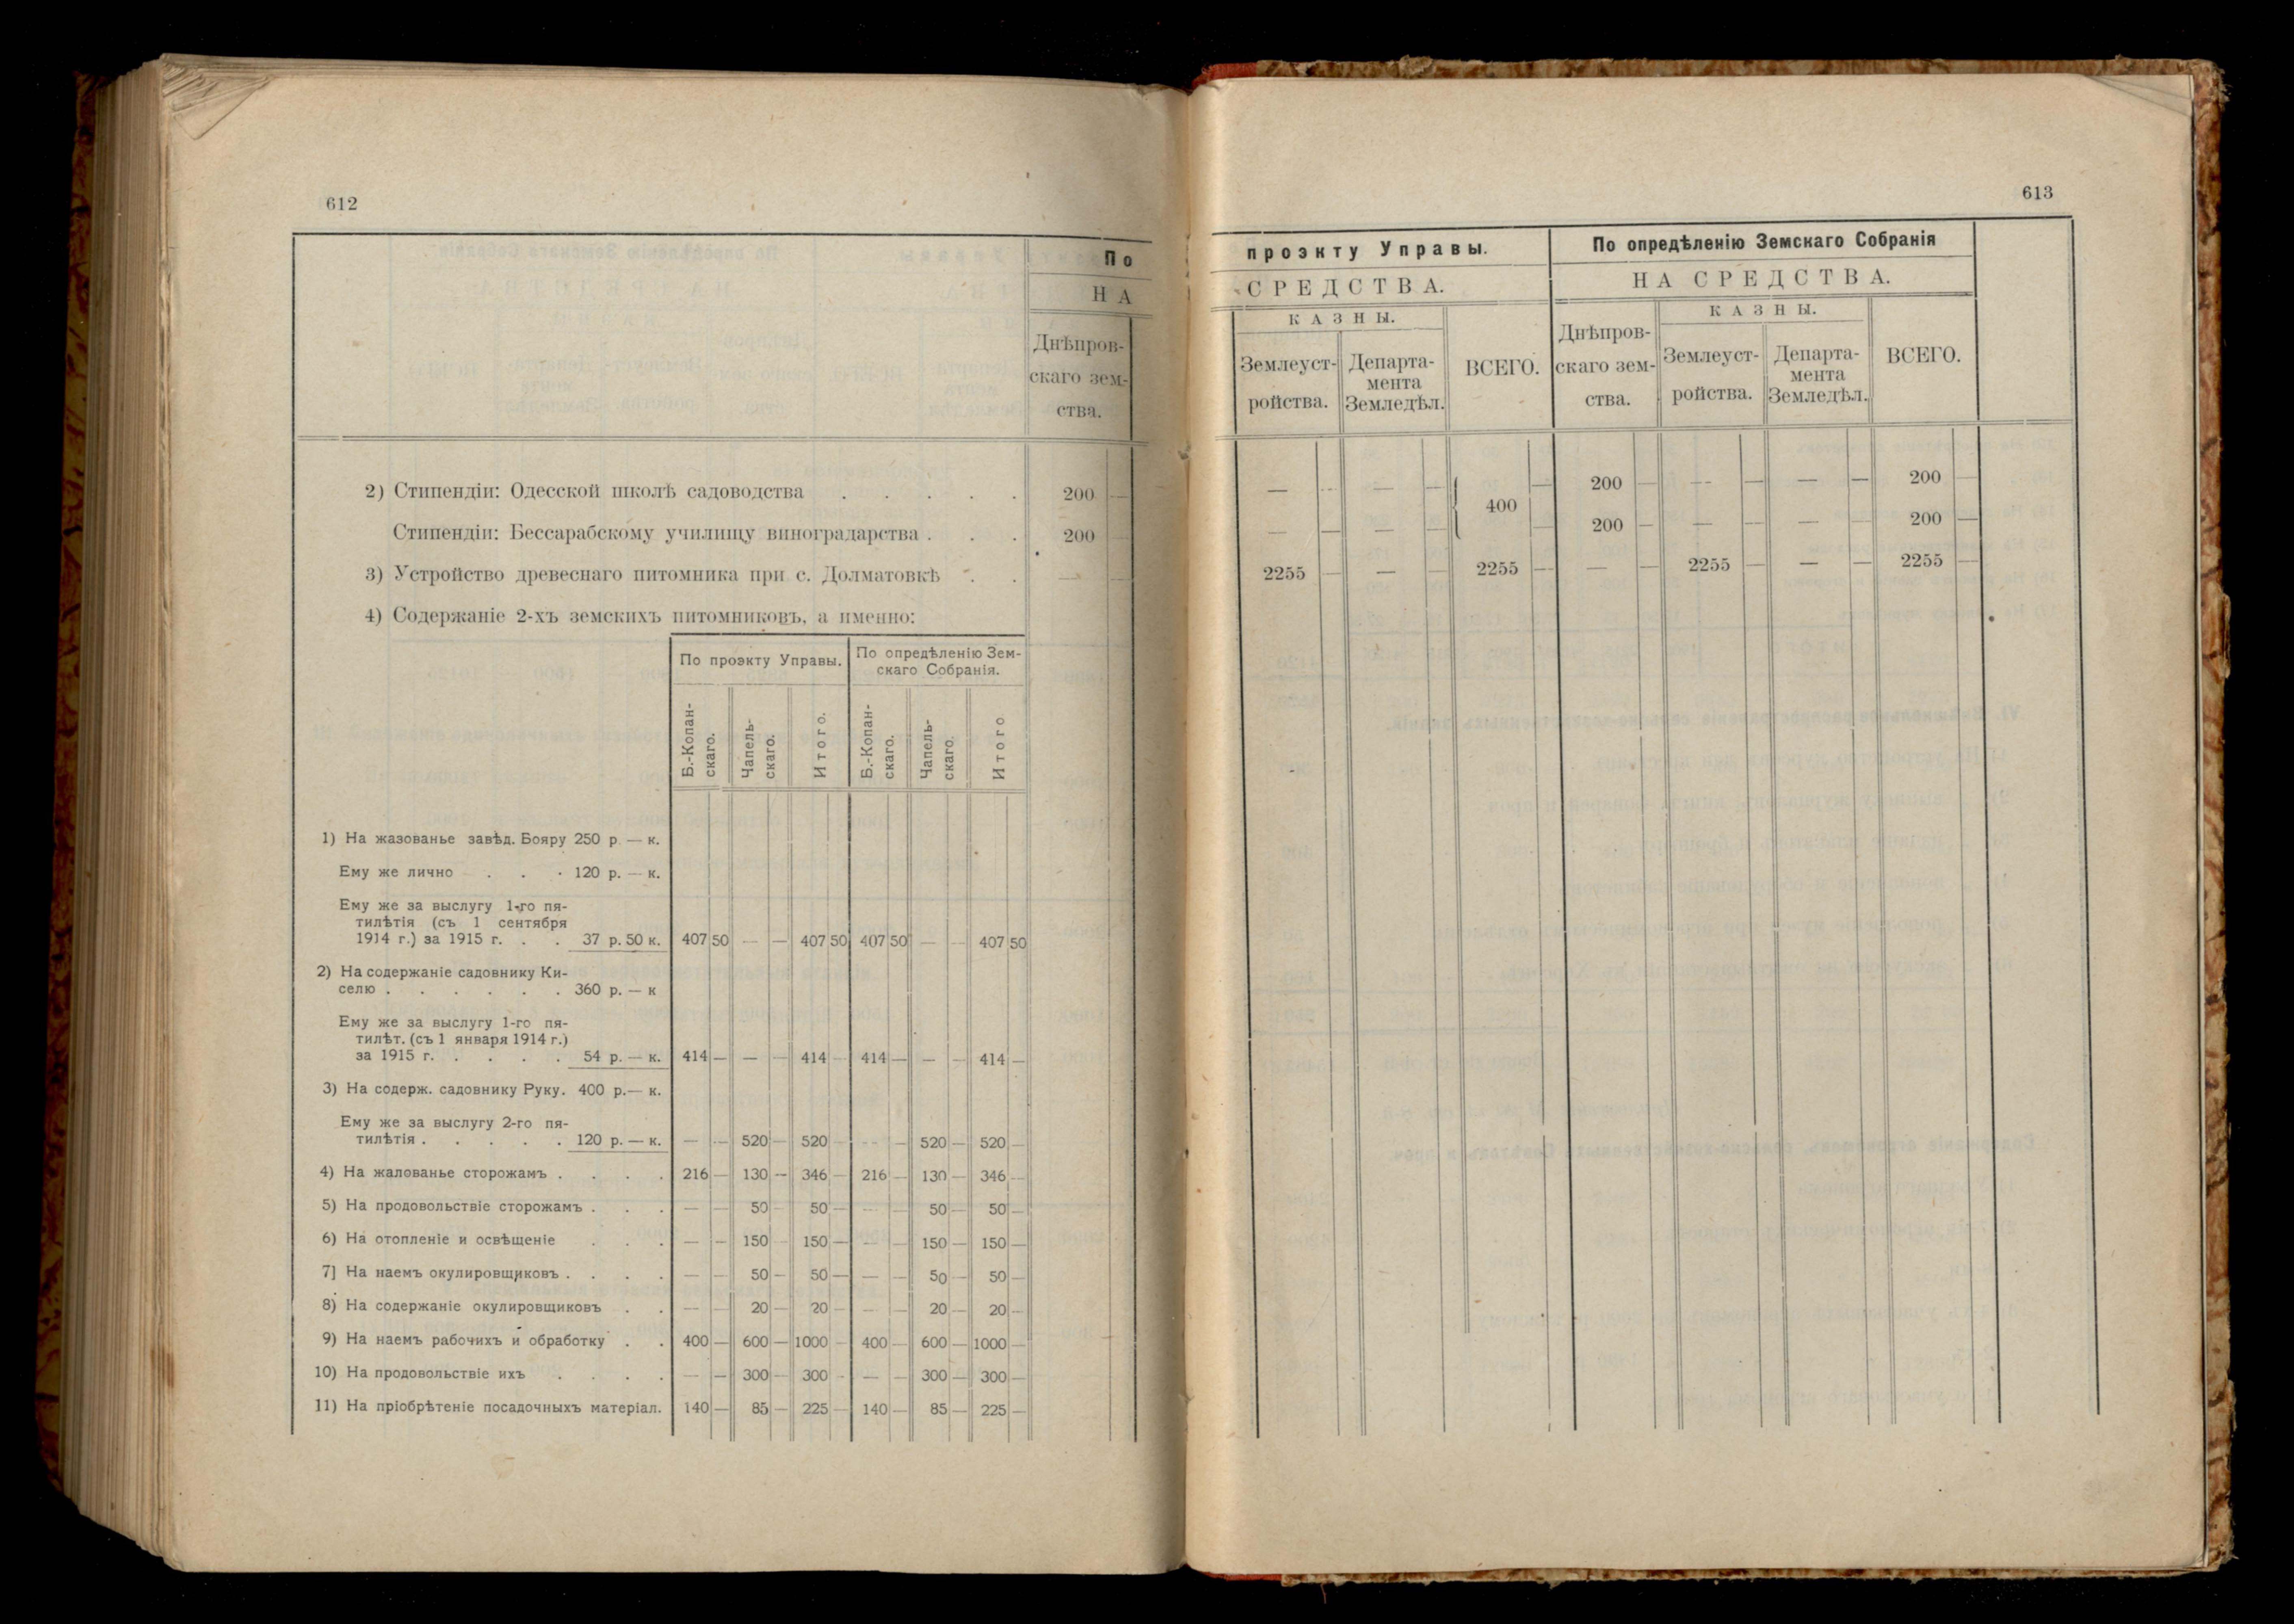 612
По
НА
Днѣпров-
скаго зем-
ства.
2) Стипендіи: Одесской школѣ садоводства . . . . . 200 —
Стипендіи: Бессарабскому училищу виноградарства . . . 200 —
3) Устройство древеснаго питомника при с. Долматовкѣ . . — —
4) Содержаніе 2-хъ земскихъ питомниковъ, а именно:
По проэкту Управы. По опредѣленію Зем-
скаго Собранія.
Б.-Копан-
скаго.
Чапель-
скаго.
Итого.
Б.-Копан-
скаго.
Чапель-
скаго.
Итого
1) На жазованье завѣд. Бояру 250 р. — к.
Ему же лично . . . 120 р. — к.
Ему же за выслугу 1-го пя-
тилѣтія (съ 1 сентября
1914 г.) за 1915 г. . . 37 р. 50 к. 407 50 — — 407 50 407 50 — — 407 50
2) На содержаніе садовнику Ки-
селю . . . . . . 360 р. — к
Ему же за выслугу 1-го пя-
тилѣт. (съ 1 января 1914 г.)
за 1915 г. . . . . 54 р. — к. 414 — — — 414 — 414 — — — 414 —
3) На содерж. садовнику Руку. 400 р.— к.
Ему же за выслугу 2-го пя-
тилѣтія . . . . . 120 р. — к. — — 520 — 520 — — — 520 — 520 —
4) На жалованье сторожамъ . . . . 216 — 130 — 346 — 216 — 130 — 346 —
5) На продовольствіе сторожамъ . . . — — 50 — 50 — — — 50 — 50 —
6) На отопленіе и освѣщеніе . . . — — 150 — 150 — — — 150 — 150 —
7] На наемъ окулировщиковъ . . . . — — 50 — 50 — — — 50 — 50 —
8) На содержаніе окулировщиковъ . . — — 20 — 20 — — — 20 — 20 —
9) На наемъ рабочихъ и обработку . . 400 — 600 — 1000 — 400 — 600 — 1000 —
10) На продовольствіе ихъ . . . . — — 300 — 300 — — — 300 — 300 —
11) На пріобрѣтеніе посадочныхъ матеріал. 140 — 85 — 225 — 140 — 85 — 225 —
613
проэкту Управы. По опредѣленію Земскаго Собранія
СРЕДСТВА. НА СРЕДСТВА.
КАЗНЫ. КАЗНЫ.
Землеуст-
ройства.
Департа-
мента
Земледѣл.
ВСЕГО.
Днѣпров-
скаго зем-
ства.
Землеуст-
ройства.
Департа-
мента
Земледѣл.
ВСЕГО.
— — — — — 200 — — — — — 200 —
400
— — — — — 200 — — — — — 200 —
2255 — — — 2255 — — — 2255 — — — 2255 —